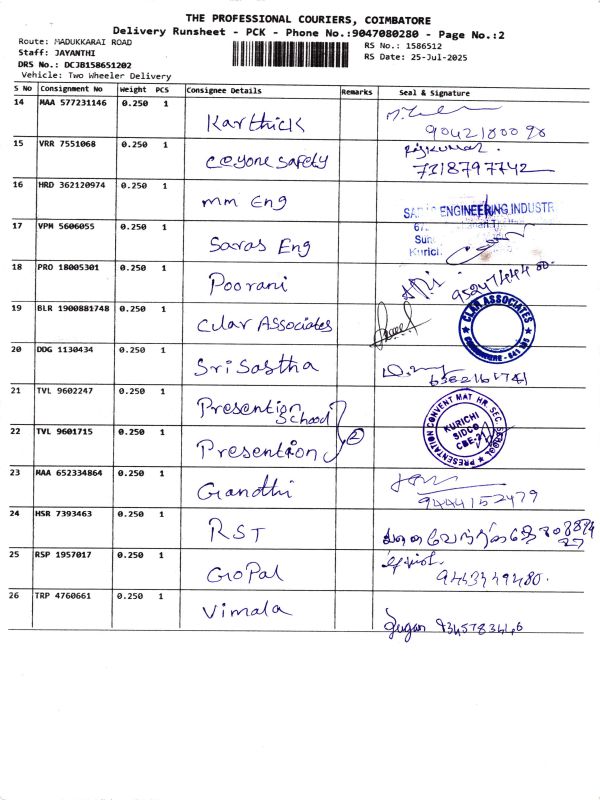 THE PROFESSIONAL COURIERS, COIMBATORE
Delivery Runsheet - PCK - Phone No.:9047080280 - Page No.:2
Route: MADUKKARAI ROAD
RS No.: 1586512
Staff: JAYANTHI
RS Date: 25-Jul-2025
DRS No.: DCJB158651202
Vehicle: Two Wheeler Delivery
S No Consignment No Weight PCS Consignee Details Remarks Seal & Signature
14 MAA 577231146 0.250 1 Karthick
15 VRR 7551068 0.250 1 coyone safety Rajkumar. 7318797742
16 HRD 362120974 0.250 1 mm Eng
ENGINEERING INDUSTR
17 VPM 5606055 0.250 1 Saras Eng
18 PRO 18005301 0.250 1 Poorani
19 BLR 1900881748 0.250 1 Clar Associates CLAR ASSOCIATES
20 DDG 1130434 0.250 1 Sri Sastha
21 TVL 9602247 0.250 1 Presention School
PRESENTATION CONVENT MAT HR. SEC. SCHOOL
KURICHI
SIDCO
CBE-21
22 TVL 9601715 0.250 1 Presention 2
23 MAA 652334864 0.250 1 Gandhi 9444152479
24 HSR 7393463 0.250 1 RST
25 RSP 1957017 0.250 1 GoPal 9443349480.
26 TRP 4760661 0.250 1 Vimala
9345783446